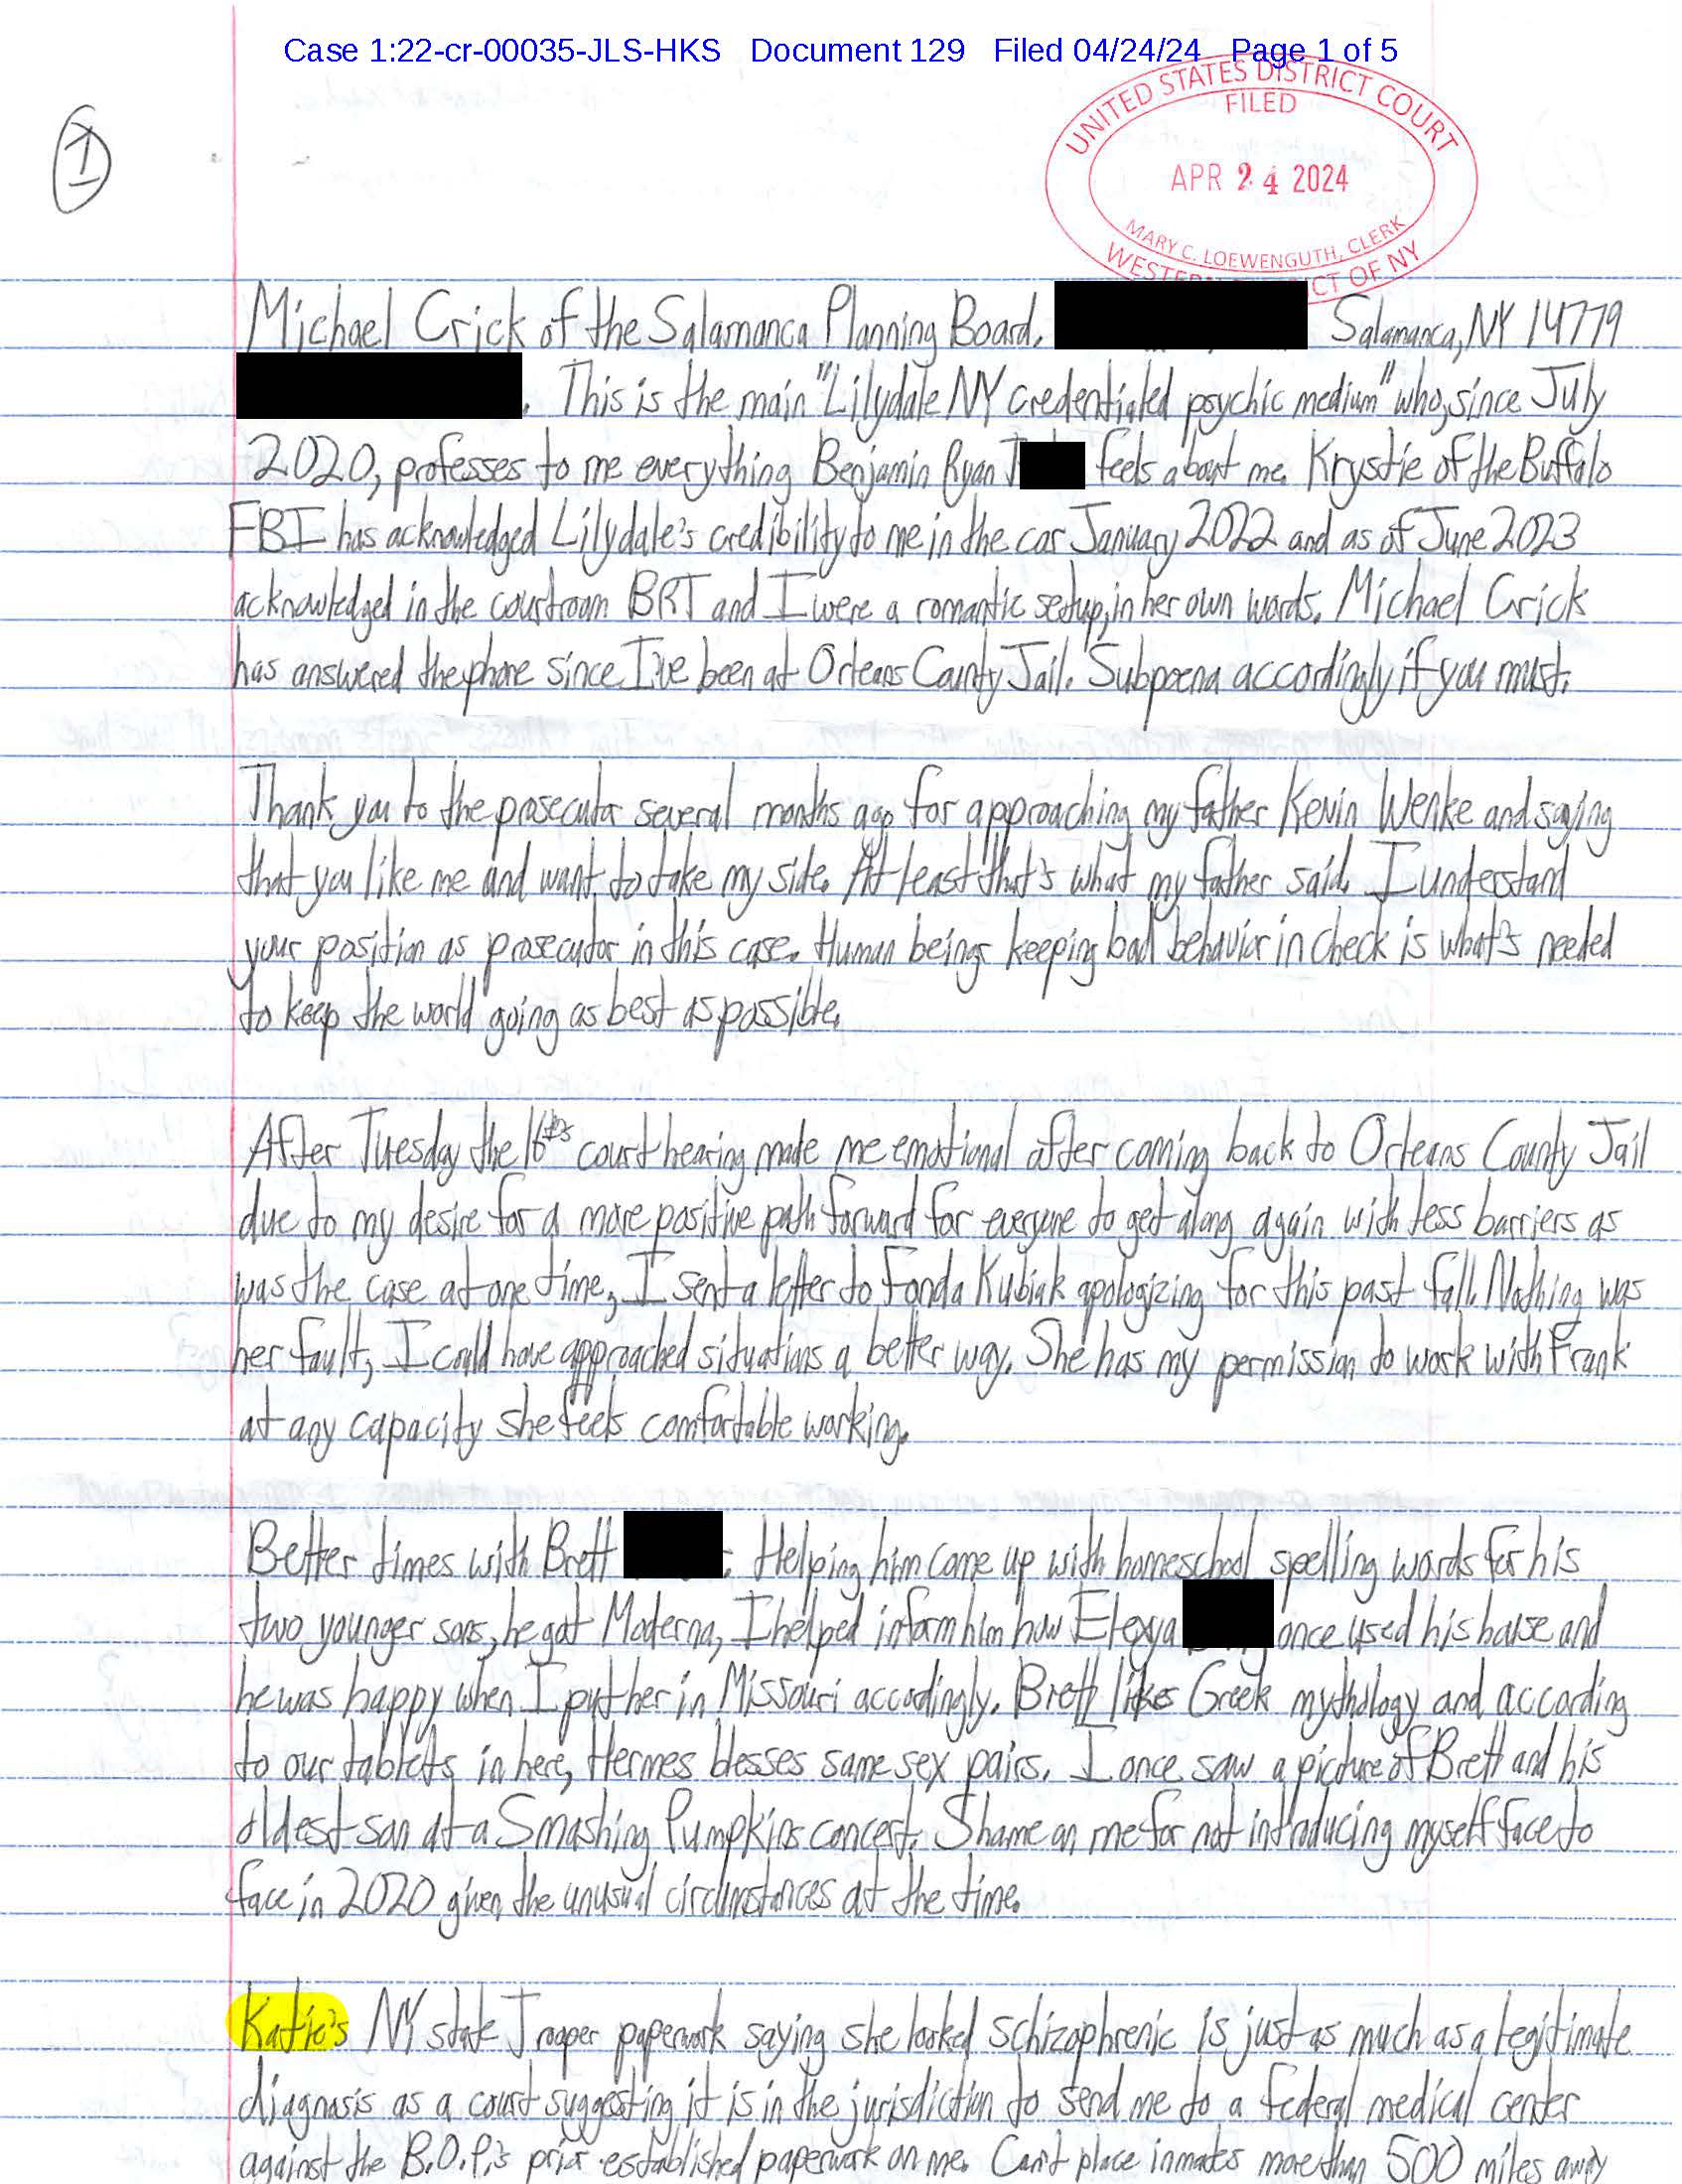 Case 1:22-cr-00035-JLS-HKS Document 129 Filed 04/24/24 Page 1 of 5
1
UNITED STATES DISTRICT COURT
FILED
APR 24 2024
MARY C. LOEWENGUTH, CLERK
WESTERN CT OF NY
Michael Crick of the Salamanca Planning Board. Salamanca, NY 14779
. This is the main "Lilydale NY credentialed psychic medium" who, since July
2020, professes to me everything Benjamin Ryan T feels about me. Krystie of the Buffalo
FBI has acknowledged Lilydale's credibility to me in the car January 2022 and as of June 2023
acknowledged in the courtroom BRT and I were a romantic setup, in her own words. Michael Crick
has answered the phone since I've been at Orleans County Jail. Subpoena accordingly if you must.
Thank you to the prosecutor several months ago for approaching my father Kevin Wenke and saying
that you like me and want to take my side. At least that's what my father said. I understand
your position as prosecutor in this case. Human beings keeping bad behavior in check is what's needed
to keep the world going as best as possible.
After Tuesday the 16th's court hearing made me emotional after coming back to Orleans County Jail
due to my desire for a more positive path forward for everyone to get along again with less barriers as
was the case at one time, I sent a letter to Fonda Kubiak apologizing for this past fall. Nothing was
her fault, I could have approached situations a better way. She has my permission to work with Frank
at any capacity she feels comfortable working.
Better times with Brett : Helping him come up with homeschool spelling words for his
two younger sons, he got Moderna, I helped inform him how Elexya once used his house and
he was happy when I put her in Missouri accordingly. Brett likes Greek mythology and according
to our tablets in here, Hermes blesses same sex pairs. I once saw a picture of Brett and his
oldest son at a Smashing Pumpkins concert. Shame on me for not introducing myself face to
face in 2020 given the unusual circumstances at the time.
Katie's NY state Trooper paperwork saying she looked schizophrenic is just as much as a legitimate
diagnosis as a court suggesting it is in the jurisdiction to send me to a federal medical center
against the B.O.P.'s prior established paperwork on me. Can't place inmates more than 500 miles away